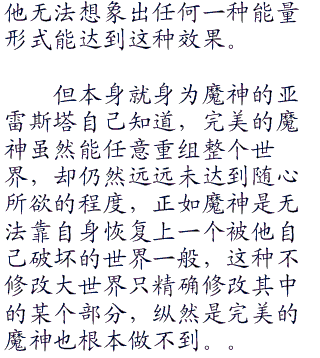 他无法想象出任何一种能量
形式能达到这种效果。
但本身就身为魔神的亚
雷斯塔自己知道，完美的魔
神虽然能任意重组整个世
界，却仍然远远未达到随心
所欲的程度，正如魔神是无
法靠自身恢复上一个被他自
己破坏的世界一般，这种不
修改大世界只精确修改其中
的某个部分，纵然是完美的
魔神也根本做不到。。